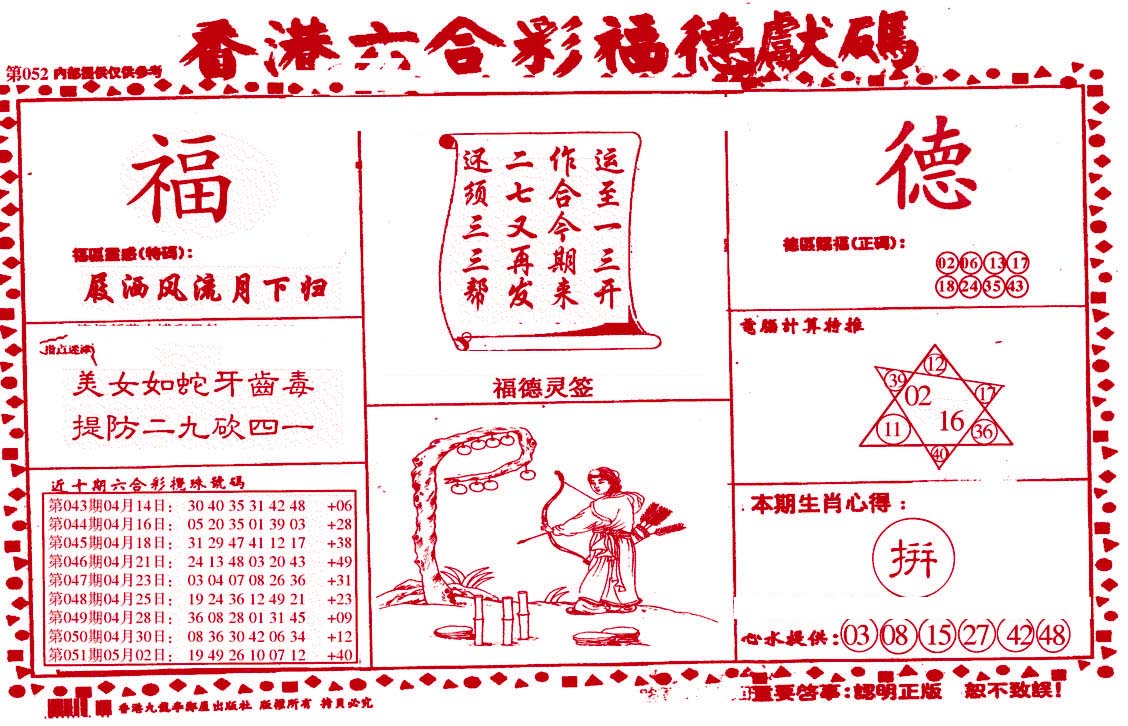 香港六合彩福德獻碼
第052 内部提供仅供参考
福
福區靈感(特碼):
屐洒风流月下归
指点迷津
美女如蛇牙齒毒
提防二九砍四一
近十期六合彩攪珠號碼
第043期04月14日: 30 40 35 31 42 48 +06
第044期04月16日: 05 20 35 01 39 03 +28
第045期04月18日: 31 29 47 41 12 17 +38
第046期04月21日: 24 13 48 03 20 43 +49
第047期04月23日: 03 04 07 08 26 36 +31
第048期04月25日: 19 24 36 12 49 21 +23
第049期04月28日: 36 08 28 01 31 45 +09
第050期04月30日: 08 36 30 42 06 34 +12
第051期05月02日: 19 49 26 10 07 12 +40
运至一三开
作合今期来
二七又再发
还须三三帮
福德灵签
德
德區賜福(正碼):
02 06 13 17
18 24 35 43
電腦計算特推
12
39
02
17
11
16
36
40
本期生肖心得:
拼
心水提供: 03 08 15 27 42 48
重要啓事:認明正版 恕不致誤!
香港九龍 出版社 版權所有 拷貝必究